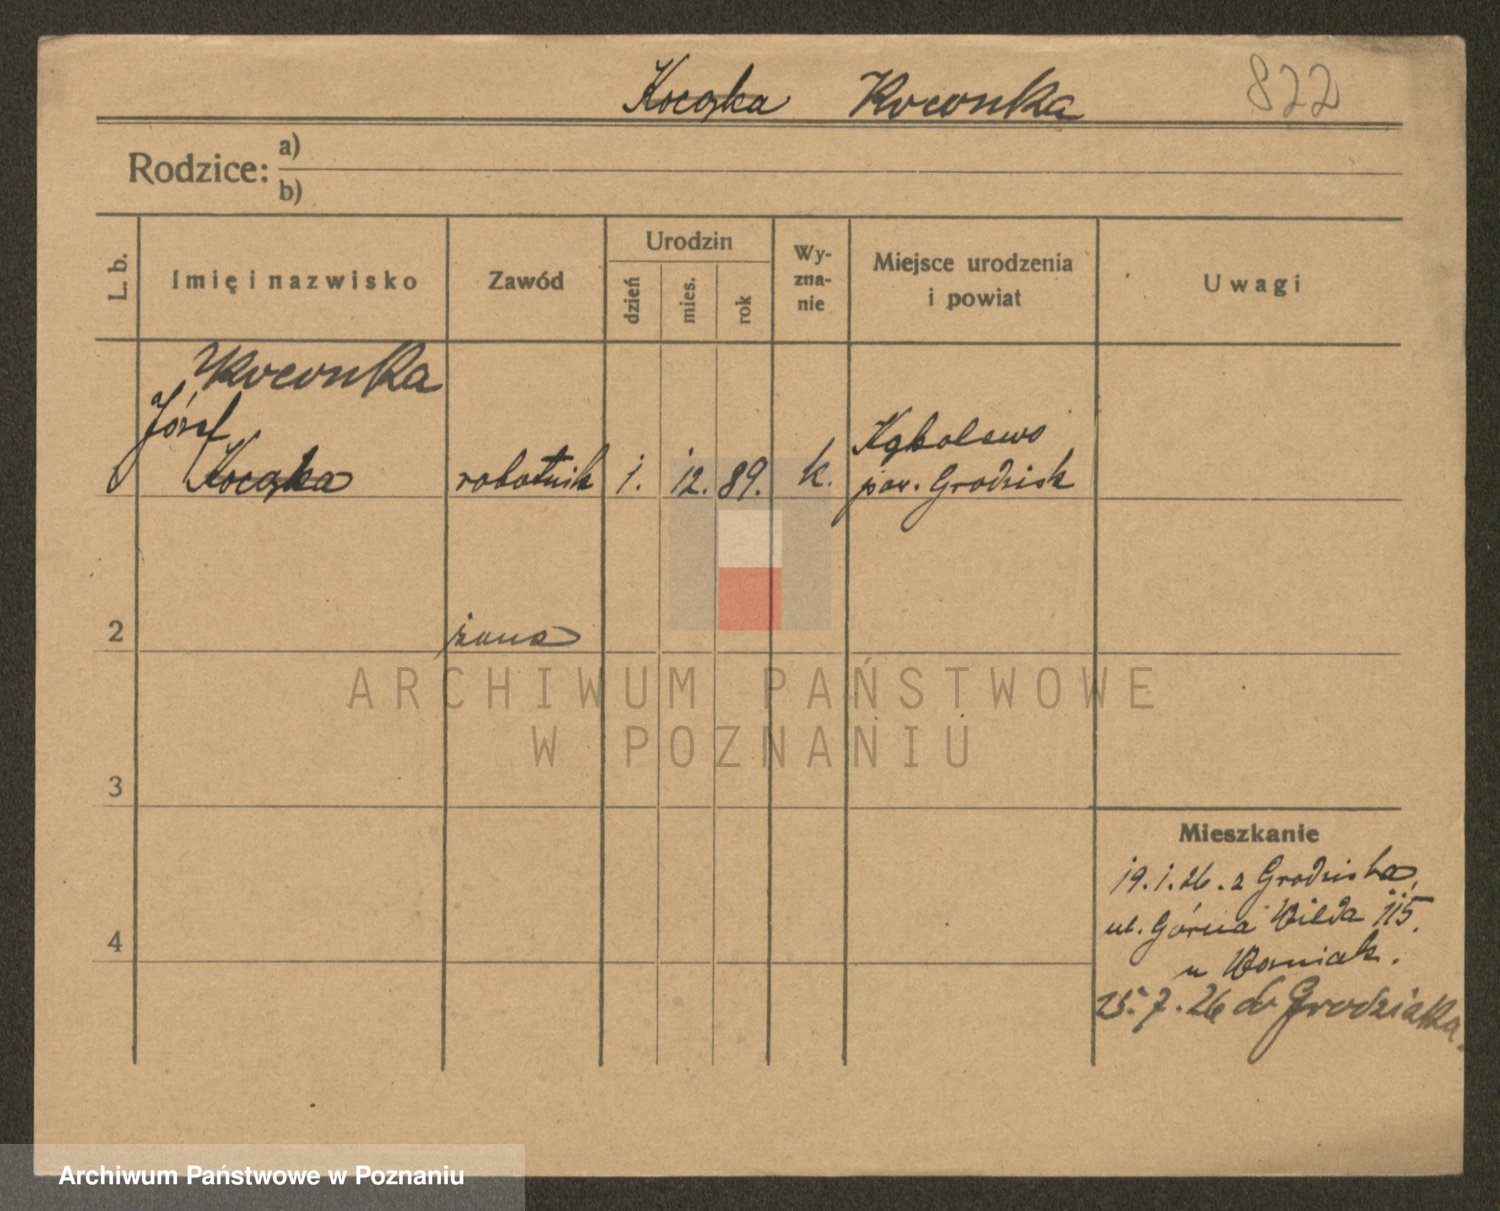 Kocąka Koconka 822
Rodzice: a)
b)
L. b. Imię i nazwisko Zawód Urodzin dzień mies. rok Wyznanie Miejsce urodzenia i powiat Uwagi
Koconka
Józef Kąkolewo
Kocąka robotnik 1. 12. 89. k. pow. Grodzisk
2 żona
ARCHIWUM PAŃSTWOWE
W POZNANIU
3
Mieszkanie
19.1.26. z Grodziska,
ul. Górna Wilda 115.
4
u Woźniak.
25.7.26 do Grodziska.
Archiwum Państwowe w Poznaniu